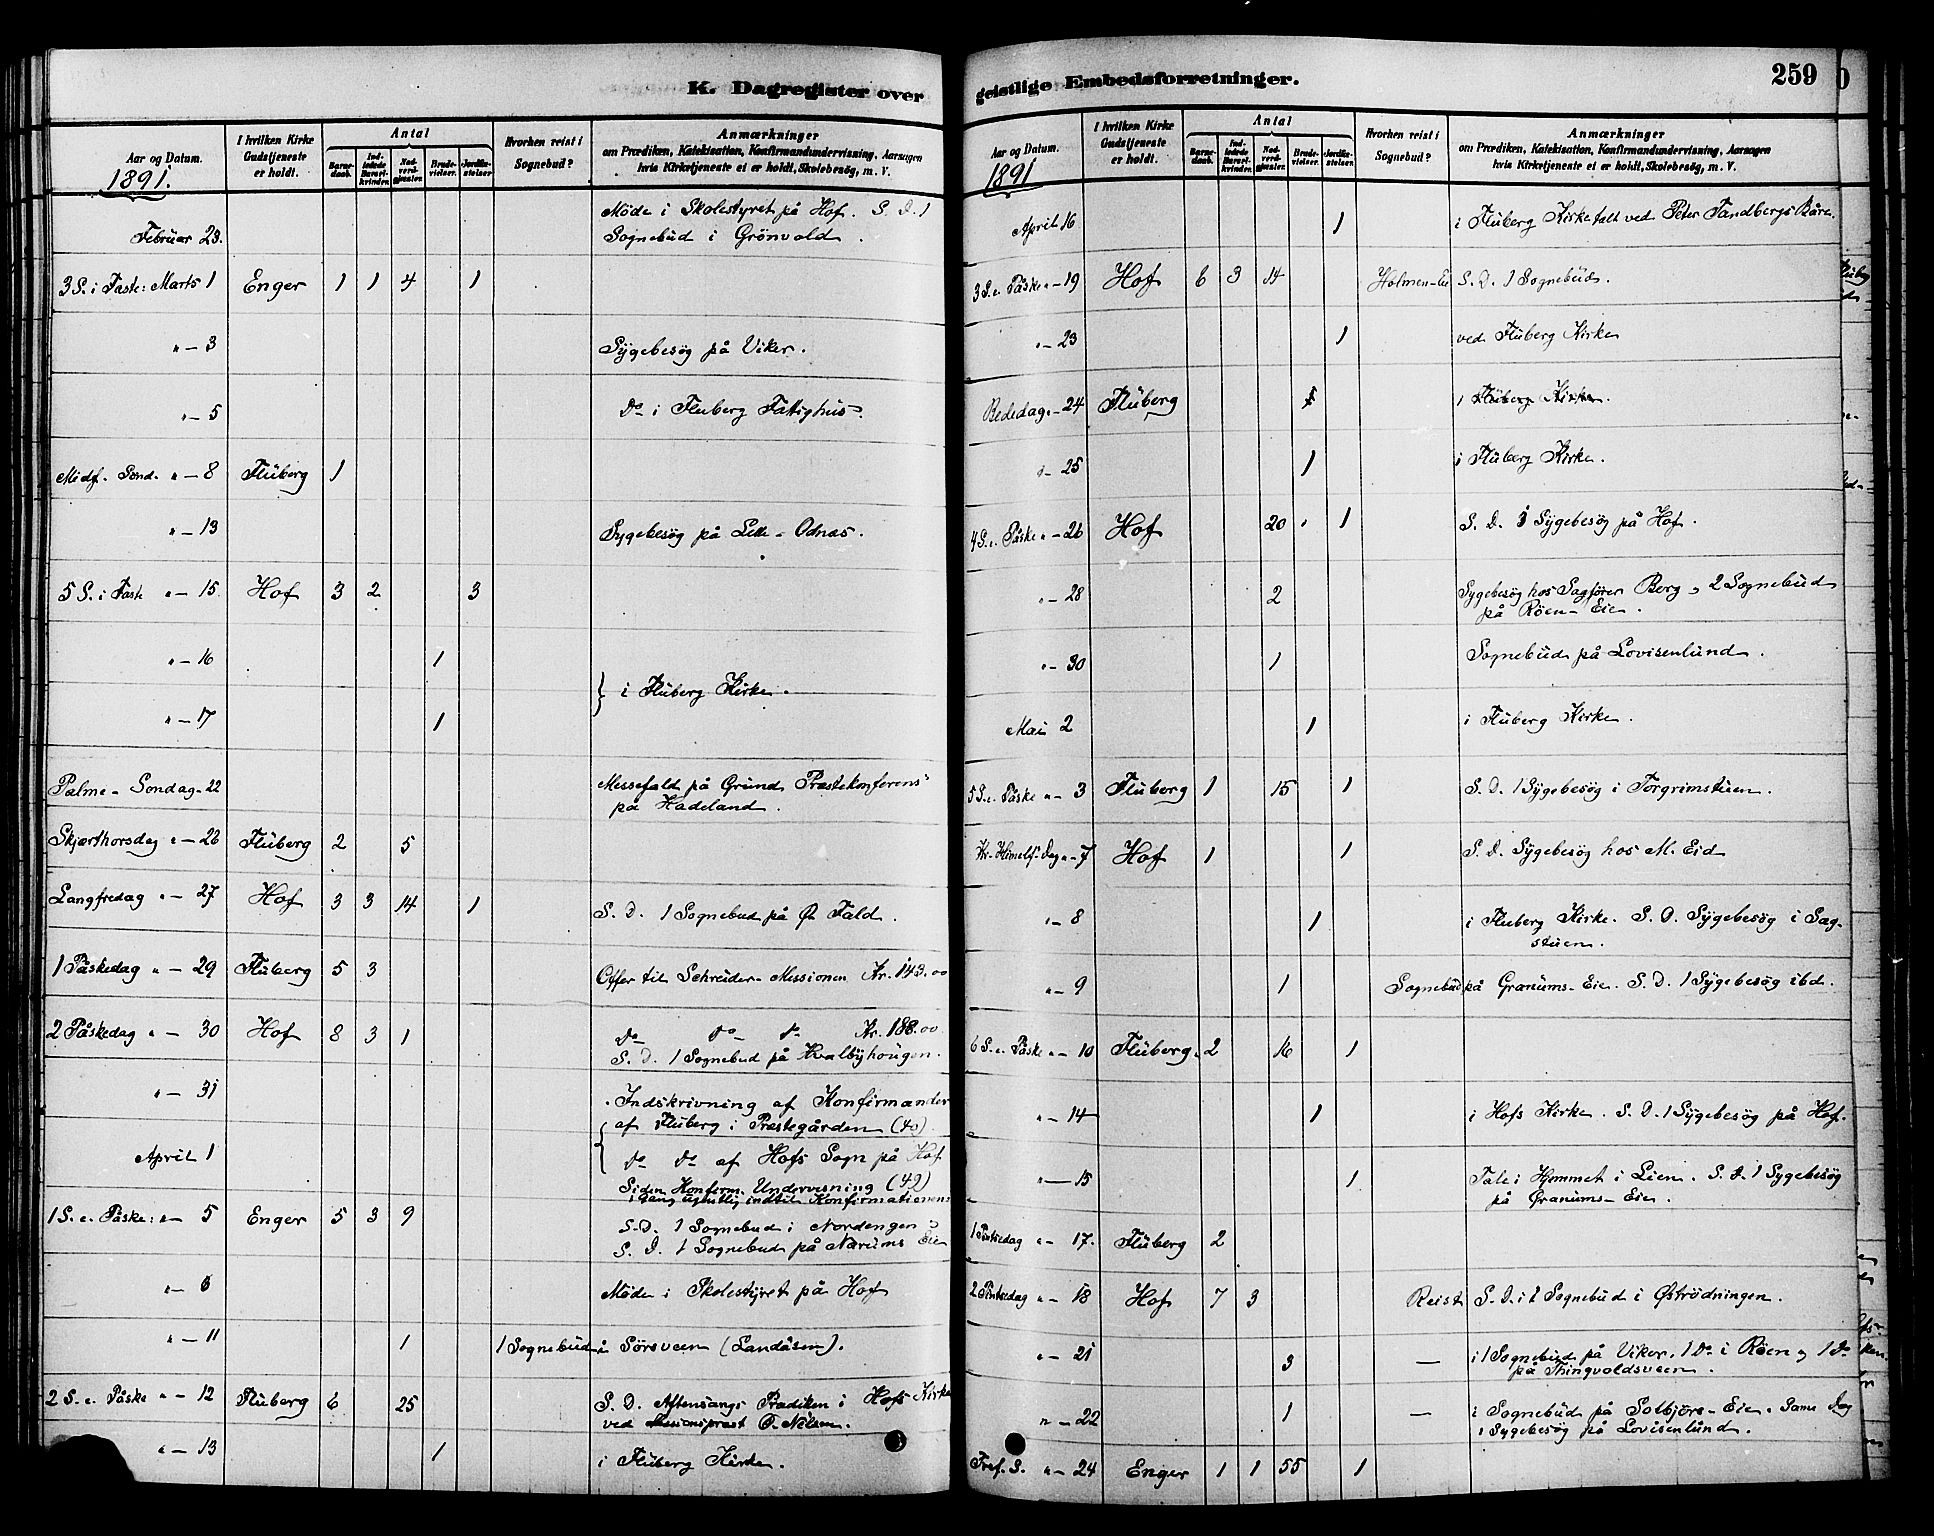 K. Dagregister over
Aar og Datum.
I hvilken Kirke Gudstjeneste er holdt.
Antal
Barnedaab.
Indledede Barselkvinder.
Nadverdgjæster.
Brudevielser.
Jordfæstelser.
Hvorhen reist i Sognebud?
Anmærkninger
om Prædiken, Katekisation, Konfirmandundervisning, Aarsagen
hvis Kirketjeneste ei er holdt, Skolebesøg, m. V.
1891.
Februar 23. Møde i Skolestyret på Hof. S. D. 1
Sognebud i Grönvold.
3 S. i Faste: Marts 1 Enger 1 1 4 1
" – 3 Sÿgebesög på Viker.
" – 5 Do i Fluberg Fattighus.
Midf. Sönd. " – 8 Flüberg 1
" – 13 Sygebesög på Lille-Odnæs.
5 S. i Faste " – 15. Hof 3 2 3
" – 16 1
} i Fluberg Kirke.
" – 17 1
Palme-Sondag – 22 Messefald på Grund Præstekonferens
på Hadeland.
Skjærthorsdag " – 26 Flüberg 2 5
Langfredag " – 27 Hof 3 3 14 1 S. D. 1 Sognebud på Ø. Fald.
1 Påskedag " – 29 Flüberg 5 3 Offer til Schreuder-Missionen Kr. 143.00
2 Påskedag " – 30 Hof 8 3 1 Do Do Do Kr. 188.00
S. D. 1 Sognebud på Kvalbyhougen.
" – 31 Indskrivning af Konfirmander
af Fluberg i Præstegården (40).
April 1 Do Do af Hofs Sogn på Hof
Siden Konfirm. Undervisning (49)
1 Gang ugentlig indtil Konfirmationen
1 S. e. Påske: " – 5 Enger 5 3 9 S. D. 1 Sognebud i Nordengen
S. D. 1 Sognebud på Narums Eie
" – 6 Møde i Skolestyret på Hof
" – 11 1 1 Sognebud i Sörsveen (Landåsen).
2 S. e. Påske " – 12 Fluberg 6 25 S. D. Aftensangs Prædiken i Hofs Kirke
ved Missionsprest O. Nilsen.
" – 13 1 i Flüberg Kirke.
geistlige Embedsforretninger.
259
Aar og Datum.
I hvilken Kirke Gudstjeneste er holdt.
Antal
Barnedaab.
Indledede Barselkvinder.
Nadverdgjæster.
Brudevielser.
Jordfæstelser.
Hvorhen reist i Sognebud?
Anmærkninger
om Prædiken, Katekisation, Konfirmandundervisning, Aarsagen
hvis Kirketjeneste ei er holdt, Skolebesøg, m. V.
1891
April 16 1 i Flüberg Kirke talt ved Peter Fandbergs Båre.
3 S. e. Påske " – 19 Hof 6 3 14 Holmen-Eie S. D. 1 Sognebüd.
" – 23 1 ved Flüberg Kirke
Bededag " – 24 Flüberg
i Flüberg Kirke.
" – 25 1 i Flüberg Kirke.
4 S. e. Påske " – 26 Hof 20 1 S. D. 1 Sÿgebesög på Hof.
" – 28 2 Sygebesög hos Sagförer Berg, 2 Sognebud
på Röen-Eie.
" – 30 1 Sognebüd på Lovisenlünd.
Mai 2 1 i Fluberg Kirke.
5 S. e. Påske " – 3 Flüberg 1 15 1 S. D. 1 Sÿgebesög i Torgrimstuen.
Kr. Himelf. Dag " – 7 Hof 1 1 S. D. Sÿgebesög hos M. Eid
" – 8 1 i Fluberg Kirke. S. D. Sÿgebesög i Sag-
stuen.
" – 9 1 Sognebüd på Granüms-Eie. S. D. 1 Sÿgebesög ibd.
6 S. e. Påske " – 10 Flüberg 2 16 1
" – 14 1 i Hofs Kirke. S. D. 1 Sÿgebesög på Hof.
" – 15 1 Tale i Hjemmet i Lien. S. D. 1 Sygebesög
på Granums-Eie.
1 Pintsedag " – 17. Flüberg 2
2 Pintsedag " – 18 Hof 7 3 Reist S. D. i 1 Sognebud i Øströdningen.
" – 21 3 — i 1 Sognebud på Viker, 1 Do i Röen, 1 Do
på Thingvoldsveen.
" – 22 1 — i Sognebüd på Solbjörs-Eie. Same Dag
i Sygebesög på Lovisenlund.
Tref. S. " – 24 Enger 1 1 55 1